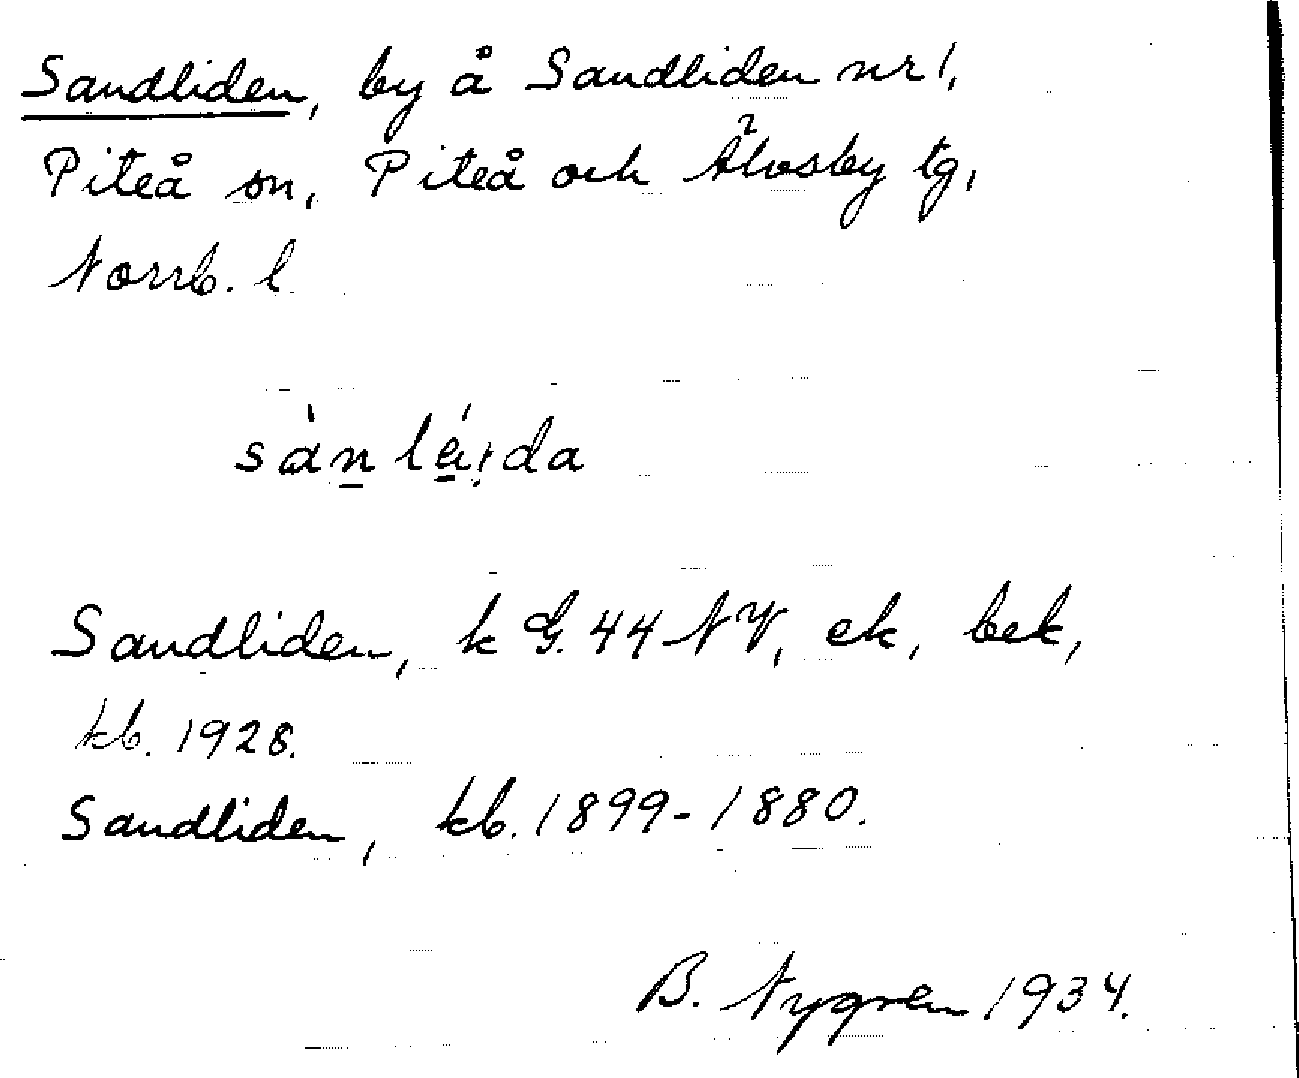 Sandliden, by å Sandliden nr 1,
Piteå sn, Piteå och Älvsby tg,
Norrb. l.
sànlä́ıda
Sandliden, k G. 44 NV, ek, bek,
kb. 1928.
Sandliden, kb. 1899-1880.
B. Nygren 1934.